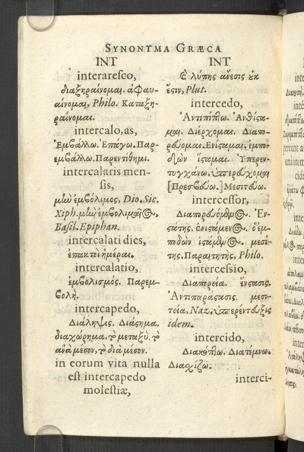 SYNONYMA GRÆCA
INT
interaresco,
διαξηραίνομαι. ἀφαυ-
αίνομαι, Philo. Καταξη-
ραίνομαι.
intercalo, as,
Ἐμβάλλω. Ἐπάγω. Παρ-
εμβάλλω. Παρεντίθημι.
intercalaris men-
sis,
μὴν ἐμβόλιμος, Dio. Sic.
Xiph. μὴν ἐμβολιμαῖος,
Basil. Epiphan.
intercalati dies,
ἐπακταὶ ἡμέραι.
intercalatio,
ἐμβολισμός. Παρεμ-
βολή.
intercapedo,
Διάληψις. Διάστημα.
διαχώρημα. τὸ μεταξύ. τὸ
ἀνὰ μέσον. τὸ διὰ μέσου.
in eorum vita nulla
est intercapedo
molestiæ,
INT
λύπης ἄνεσις οὐκ
ἔστιν, Plut.
intercedo,
Ἀντιπίπτω. Ἀνθίστα-
μαι. Διέρχομαι. Διαπο-
ρεύομαι. Ἐνίσταμαι. ἐμπο-
δὼν ἵσταμαι. Ὑπερεν-
τυγχάνω. ὑπερεύχομαι
[Πρεσβεύω.] Μεσιτεύω.
intercessor,
Διαπορευόμενος. Ἐν-
στάτης. ἐνιστάμενος. ὁ ἐμ-
ποδὼν ἱστάμενος. μεσί-
της. Παραιτητής, Philo.
intercessio,
Διαπορεία. ἔνστασις.
Ἀντιπαράστασις. μεσι-
τεία, Naz. ὑπερέντευξις
idem.
intercido,
Διακόπτω. Διατέμνω.
Διασχίζω.
interci-